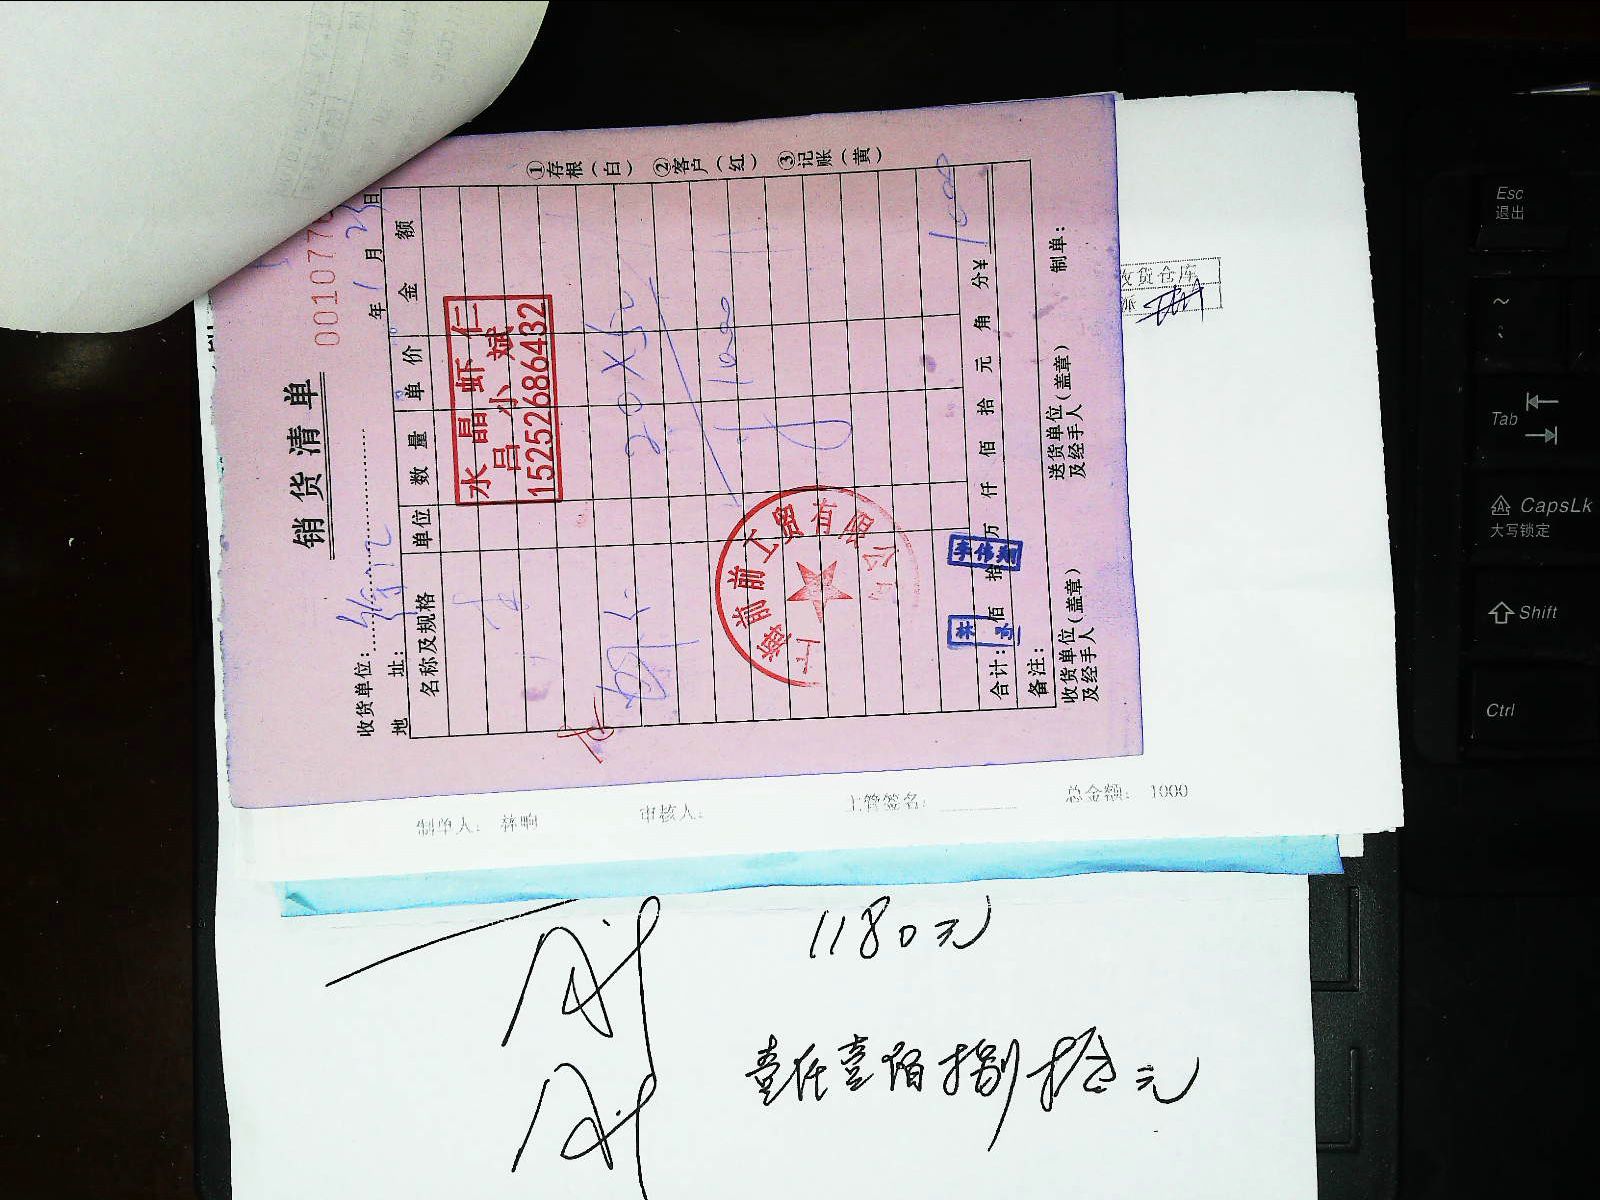 销货清单
0010770
年1月25日
收货单位：
地 址：
名称及规格 单位 数量 单价 金额
水晶虾仁
吕小斌
15252686432
虾仁
20×50
1000
合计： 佰 拾 万 仟 佰 拾 元 角 分￥ 1000
备注：
收货单位（盖章）
及经手人
送货单位（盖章）
及经手人
制单：
①存根（白） ②客户（红） ③记账（黄）
前前工贸有限公司
李伟
林
收货仓库
制单人： 林
审核人：
主管签名：
总金额： 1000
1180元
壹仟壹佰捌拾元
Esc
退出
~
Tab
CapsLk
大写锁定
Shift
Ctrl